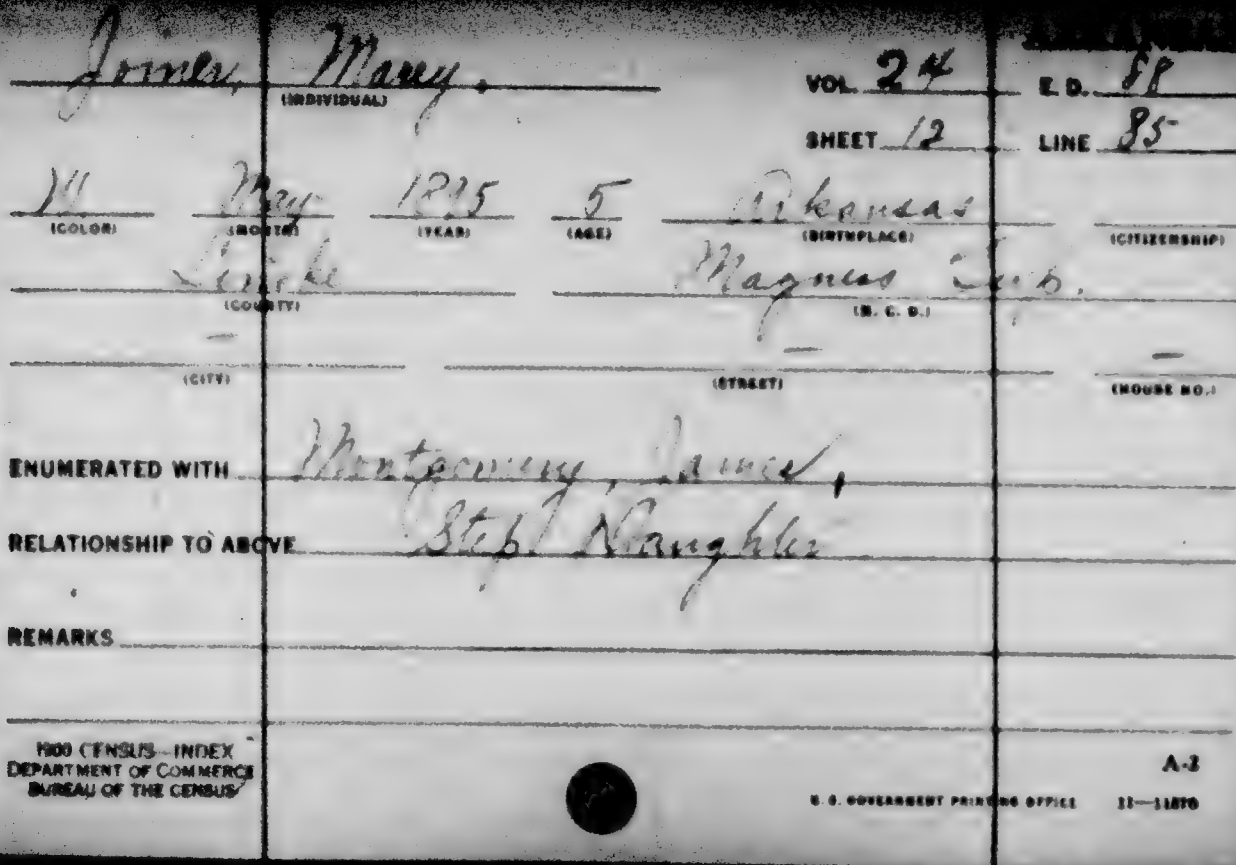 Joiner, Marey.
(INDIVIDUAL)
VOL. 24 E. D. 88
SHEET 12 LINE 85
W May 1895 5 Arkansas
(COLOR) (MONTH) (YEAR) (AGE) (BIRTHPLACE) (CITIZENSHIP)
Lonoke Magness Twp.
(COUNTY) (M. C. D.)
– – –
(CITY) (STREET) (HOUSE NO.)
ENUMERATED WITH Montgomery, James,
RELATIONSHIP TO ABOVE Step Daughter
REMARKS
1900 CENSUS—INDEX
DEPARTMENT OF COMMERCE
BUREAU OF THE CENSUS
A-2
U. S. GOVERNMENT PRINTING OFFICE 11—11870